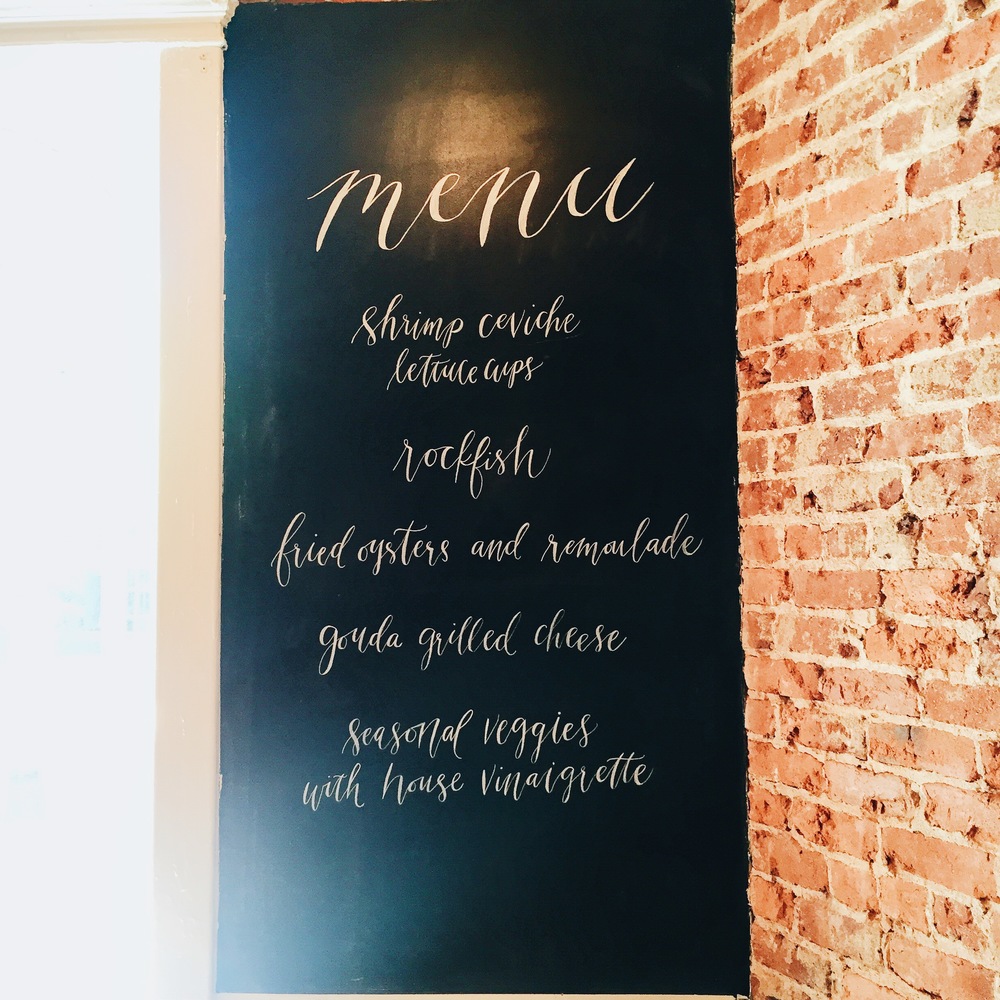 menu
shrimp ceviche
lettuce cups
rockfish
fried oysters and remoulade
gouda grilled cheese
seasonal veggies
with house vinaigrette